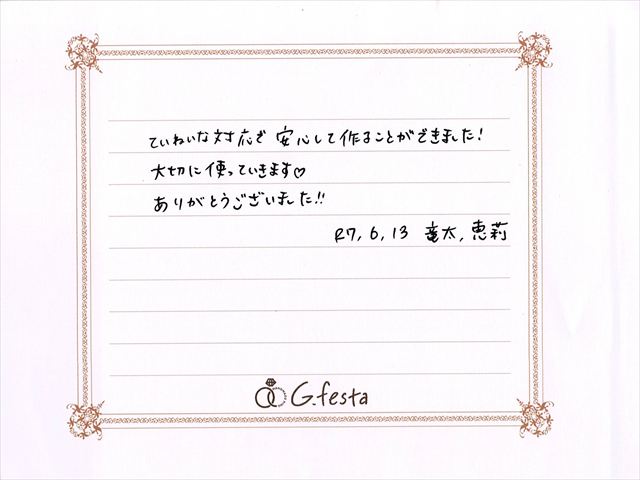 ていねいな対応で 安心して作ることができました！
大切に使っていきます♡
ありがとうございました!!
R7,6,13 竜太,恵莉
G.festa